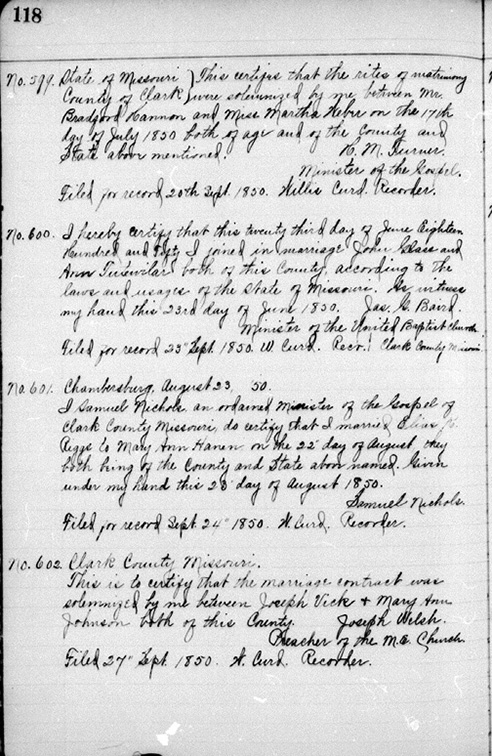 118
No. 599. State of Missouri } This certifies that the rites of matrimony
County of Clark } were solemnized by me between Mr.
Bradford Cannon and Miss Martha Heber on the 17th
day of July 1850 both of age and of the County and
State above mentioned.
H. M. Turner.
Minister of the Gospel.
Filed for record 20th Sept. 1850. Willis Curd. Recorder.
No. 600. I hereby certify that this twenty third day of June Eighteen
Hundred and Fifty I joined in marriage John Glass and
Ann both of this County, according to the
laws and usages of the State of Missouri. As witness
my hand this 23rd day of June 1850. Jas. G. Baird.
Minister of the United Baptist Church
Filed for record 23" Sept. 1850. W. Curd. Recr. Clark County Missouri
No. 601. Chambersburg, August 23, 50.
I Samuel Nichols an ordained Minister of the Gospel of
Clark County Missouri, do certify that I married Elias
Riggs to Mary Ann Hanen on the 22" day of August, they
both being of the County and State above named. Given
under my hand this 23" day of August 1850.
Samuel Nichols.
Filed for record Sept 24" 1850. W. Curd. Recorder.
No. 602. Clark County Missouri.
This is to certify that the marriage contract was
solemnized by me between Joseph Vick + Mary Ann
Johnson both of this County. Joseph Welsh.
Preacher of the M.E. Church.
Filed 27" Sept. 1850. W. Curd. Recorder.